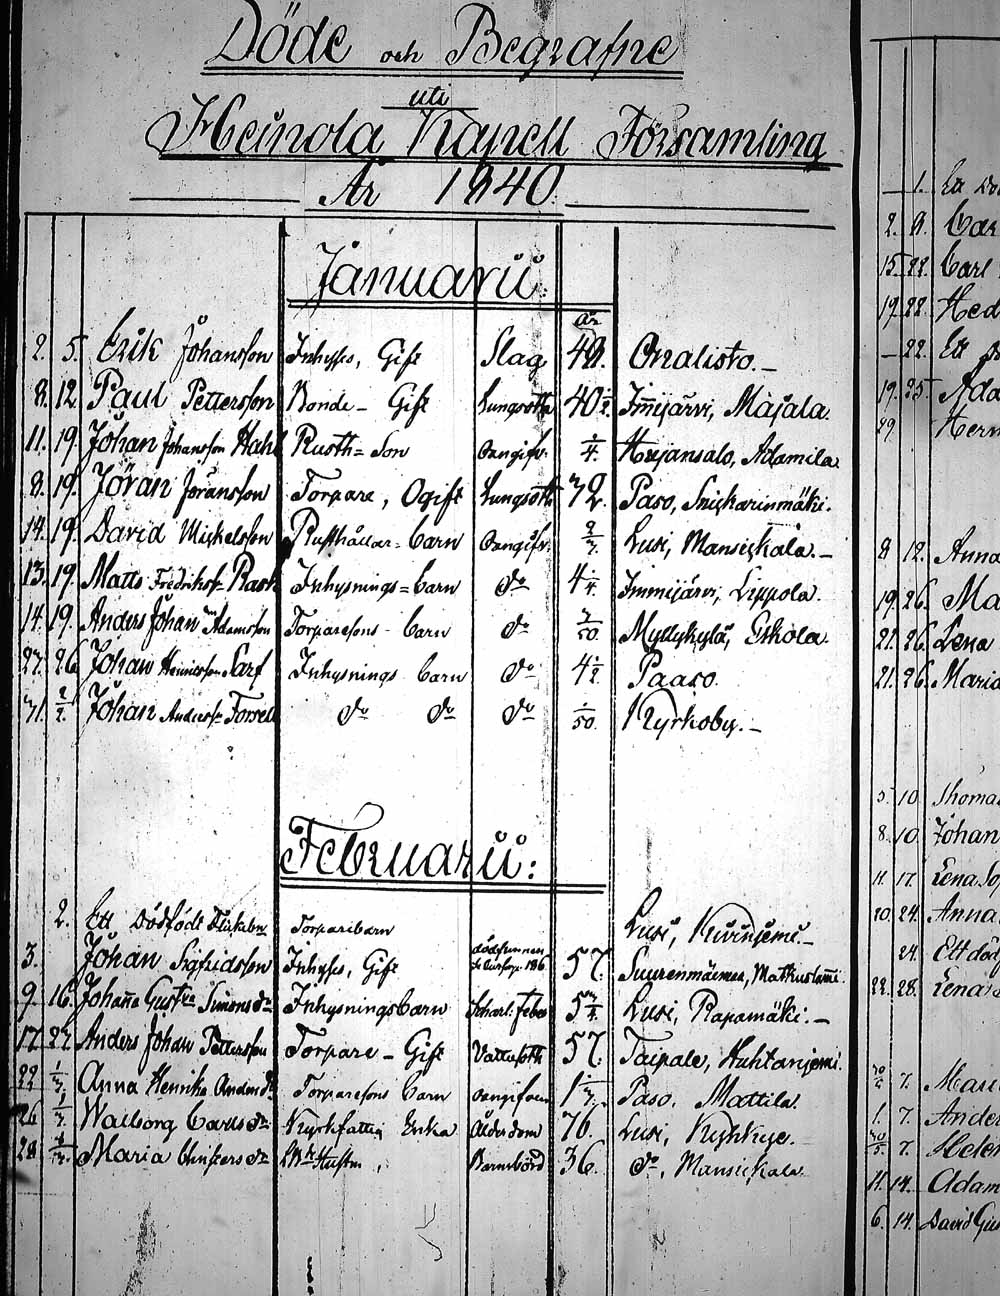 Döde och Begrafne
uti
Heinola Kapell Församling
År 1840.
Januarii:
år
2. 5. Erik Johansson Inhyses, Gift Slag 49. Onalisto. –
8. 12. Paul Pettersson Bonde – Gift Lungsot 40 1/2 Im̄ijärvi, Majala.
11. 19. Johan Johansson Hahl Rusth= Son oangifv. 1/4. Heijansalo, Adamila
8. 19. Jöran Jöransson Torpare, Ogift Lungsot 72. Paso, Snickarinmäki.
14. 19. David Mickelsson Rusthållar= barn oangifv. Lusi, Mansickala. –
13. 19. Matts Fredrikss. Rask Inhysnings= barn do 4 Immijärvi, Lippola.
14. 19. Anders Johan Adamsson Torparesons barn do Myllykylä, Eskola
27. 26. Johan Henricsson Sarf Inhysnings barn do 4 1/2 Paaso.
31. 2/2. Johan Anderss. Forsell do do do 1/50. Kyrkoby. –
Februarii:
2. Ett dödfödt Flickebn Torparebarn Lusi, –
3. Johan Sigfridsson Inhyses, Gift 57. Suurenmäemaa,
9. 16. Johanna Gust:va Simonsdr Inhysningsbarn Scharl: feber 5 3/4. Lusi, Rapamäki. –
17. 27. Anders Johan Pettersson Torpare – Gift Vattusot 57. Taipale, Huhtaniemi.
22 1/3. Anna Henrika Andersdr Torparesons barn oangifven Paso. Mattila.
26 1/3. Walborg Carlsdr Kyrkfattig Enka Ålderdom 76. Lusi,
28 Maria Barnsbörd 36. do, Mansickala
1. Ett
2. 9. Car
15. 22. Carl
19. 22. Hed
– 22. Ett
19. 25. Ada
29 Herm
8 12. Anna
19. 26. Ma
21. 26. Lena
21. 26. Maria
5. 10. Thomas
8. 10. Johan
11. 17. Lena So
20. 24. Anna
24. Ett död
22. 28. Lena
7. Mari
1. 7. Ander
7. Helen
11. 14. Adam
6. 14. David Gus